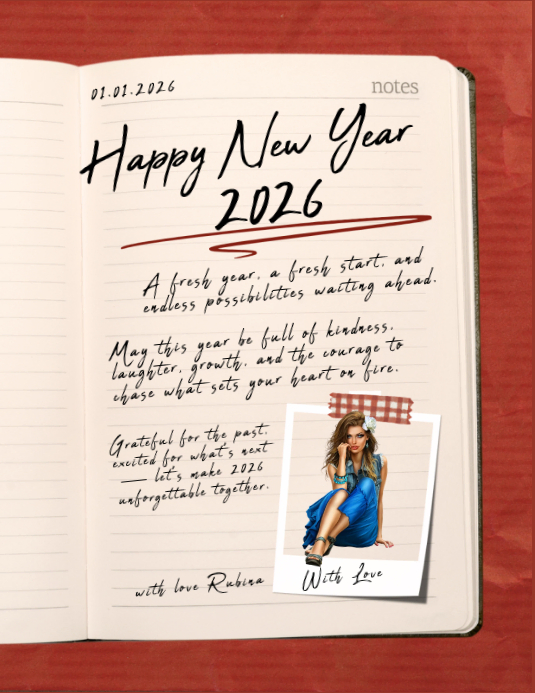 01.01.2026
notes
Happy New Year
2026
A fresh year, a fresh start, and
endless possibilities waiting ahead.
May this year be full of kindness,
laughter, growth, and the courage to
chase what sets your heart on fire.
Grateful for the past,
excited for what's next
— let's make 2026
unforgettable together.
with love Rubina
With Love